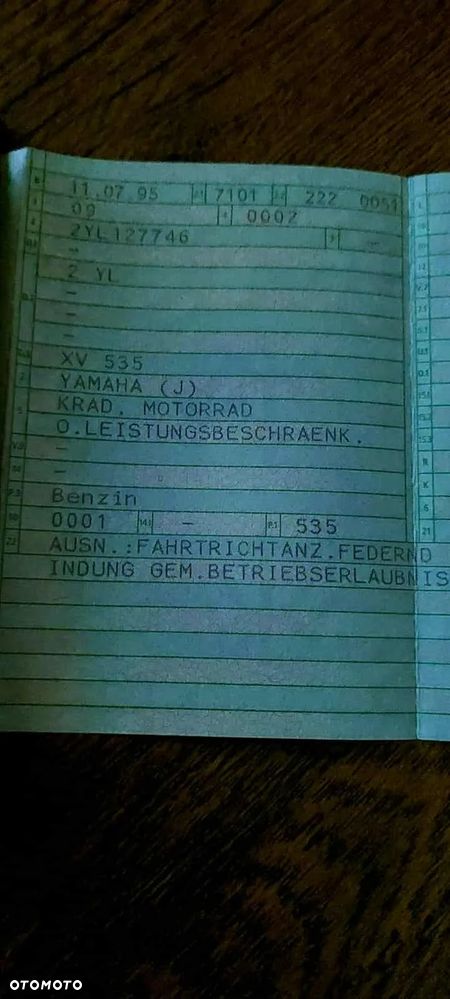 B 11.07.95 2.1 7101 2.2 222 0051
J 09 4 0002
E 2YL127746 3 -
D.2 -
2 YL
-
-
-
D.3 XV 535
2 YAMAHA (J)
5 KRAD. MOTORRAD
O.LEISTUNGSBESCHRAENK.
V.9 -
14 -
P.3 Benzin
10 0001 14.1 - P.1 535
22 AUSN.:FAHRTRICHTANZ.FEDERND
INDUNG GEM.BETRIEBSERLAUBNIS
OTOMOTO